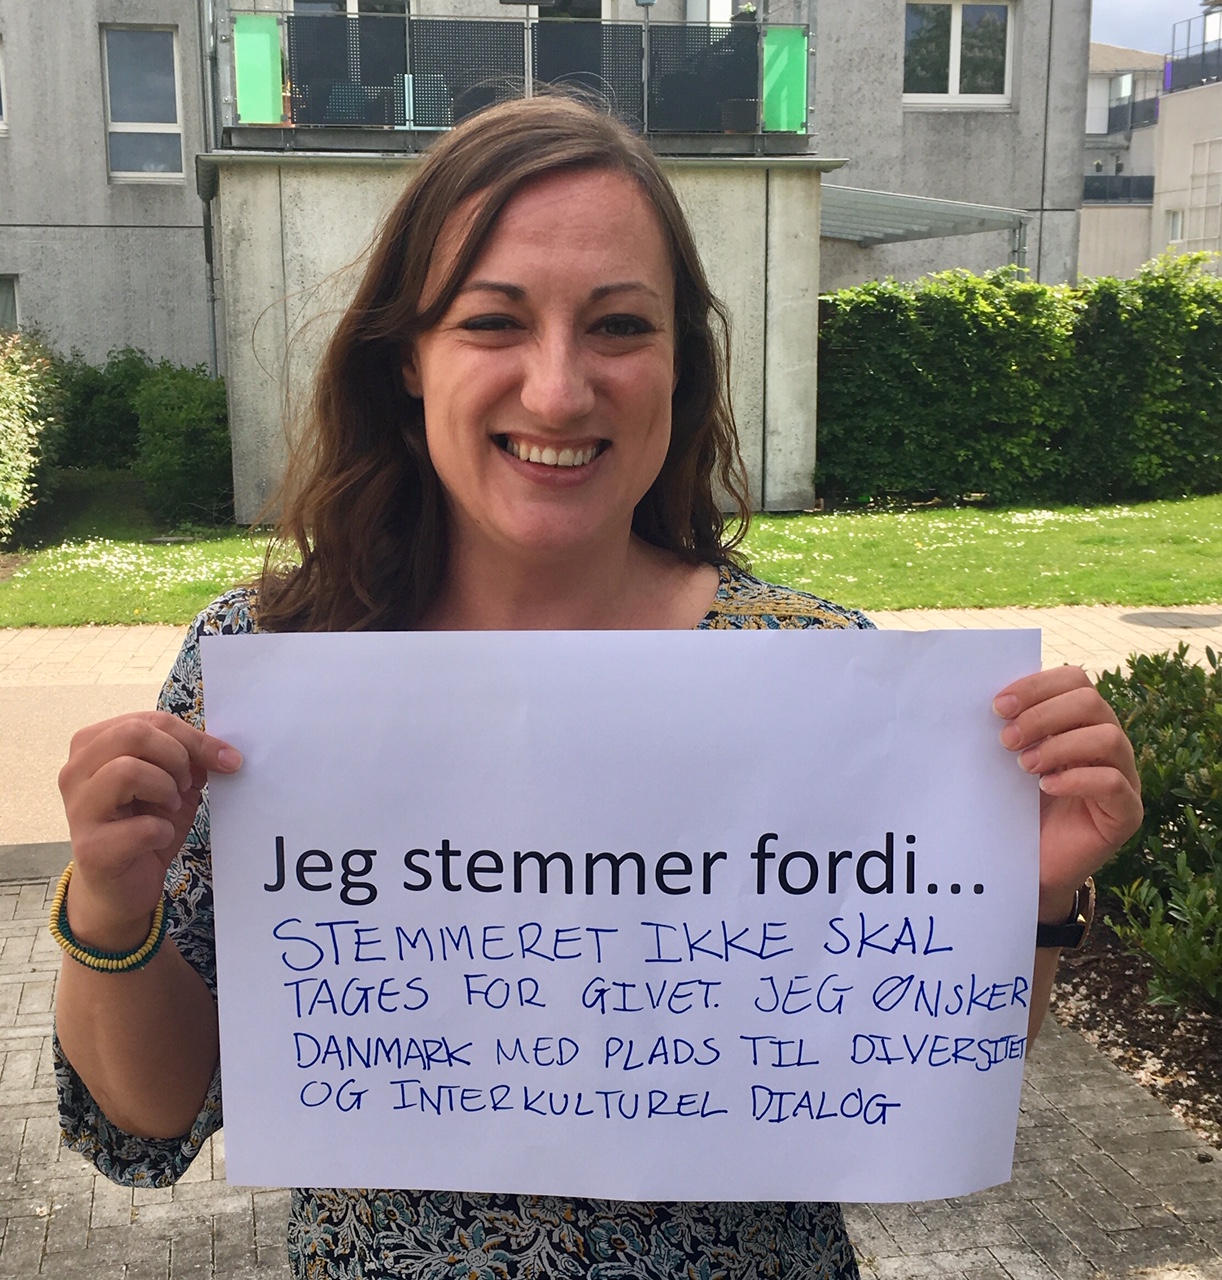 Jeg stemmer fordi...
STEMMERET IKKE SKAL
TAGES FOR GIVET. JEG ØNSKER
DANMARK MED PLADS TIL DIVERSITET
OG INTERKULTUREL DIALOG